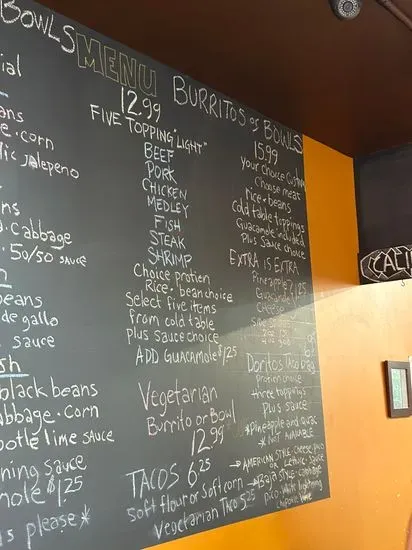 BOWLS
ial
eans
e · corn
lic jalepeno
ns
d cabbage
50/50 sauce
n
beans
de gallo
sauce
sh
black beans
abbage · corn
potle lime sauce
ning sauce
mole $1.25
s please*
MENU
12.99
FIVE TOPPING "LIGHT"
BEEF
PORK
CHICKEN
MEDLEY
FISH
STEAK
SHRIMP
Choice protien
Rice · bean choice
Select five items
from cold table
plus sauce choice
ADD GUACAMOLE $1.25
Vegetarian
Burrito or Bowl
12.99
TACOS 6.25
soft flour or soft corn
Vegetarian Taco 5.25
BURRITOS or BOWLS
15.99
your choice Custom
choose meat
rice · beans
cold table toppings
Guacamole included
plus sauce choice
EXTRA is EXTRA
Pineapple
Guacamole 1.25
cheese
side
Doritos Taco Bag
protien choice
three toppings
plus sauce
*Pineapple and guac
*NOT AVAILABLE
→AMERICAN STYLE · cheese, pico
or lettuce · sauce
→Baja STYLE · cabbage
pico white lightning
chipotle lime
CALI